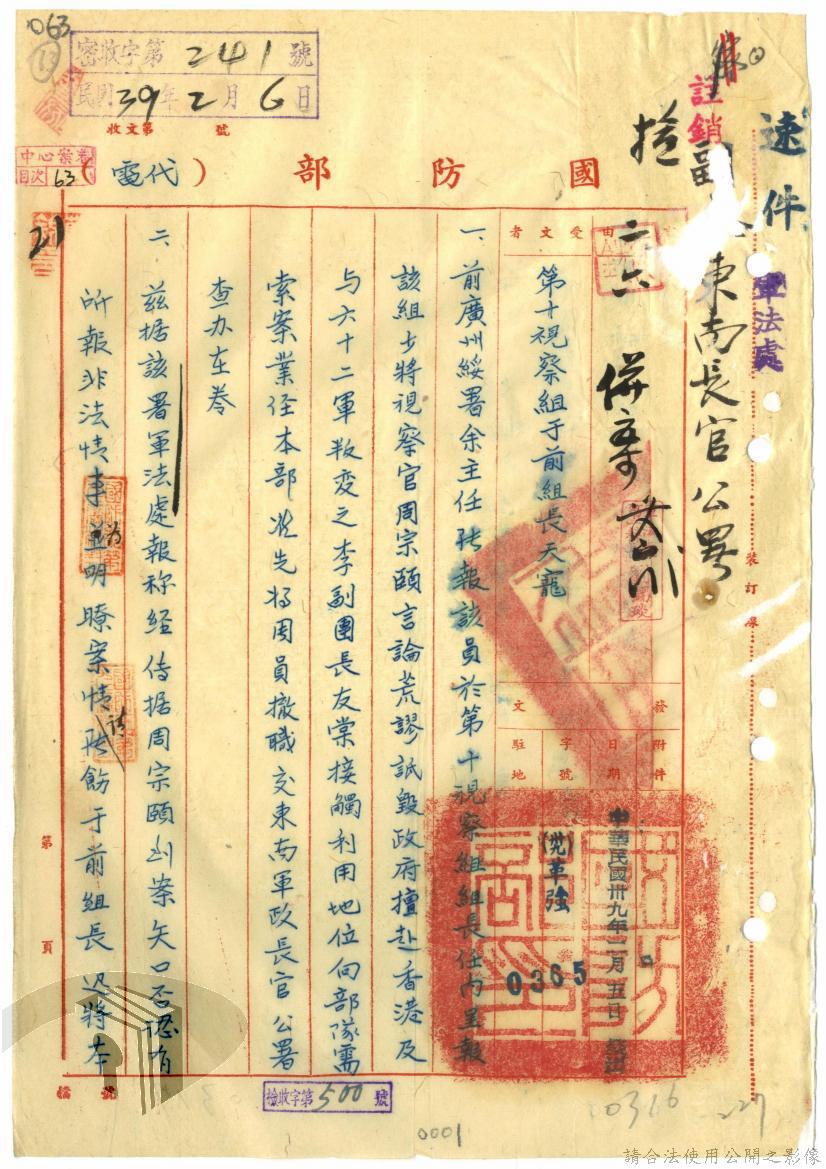 063
密收字第241號
民國39年2月6日
收文第 號
中心案卷
目次63
國防部(代電)
速件
軍法處
註銷
副本
東南長官公署
裝訂線
受文者
由
第十視察組于前組長天寵
二六
併案
發文
附件
日期
字號
駐地
中華民國卅九年二月五日
(39)革強
0365
一、前廣州綏署余主任張報該員於第十視察組組長任內呈報
該組少將視察官周宗頤言論荒謬詆毀政府擅赴香港及
与六十二軍叛变之李副團長友棠接觸利用地位向部隊需
索案業經本部准先將周員撤職交東南軍政長官公署
查办在卷
二、茲据該署軍法處報称經傳据周宗頤到案矢口否認有
所報非法情事為並明瞭案情張請飭于前組長迅將本
21
第 頁
檔號
檢收字第500號
0316
227
0001
請合法使用公開之影像